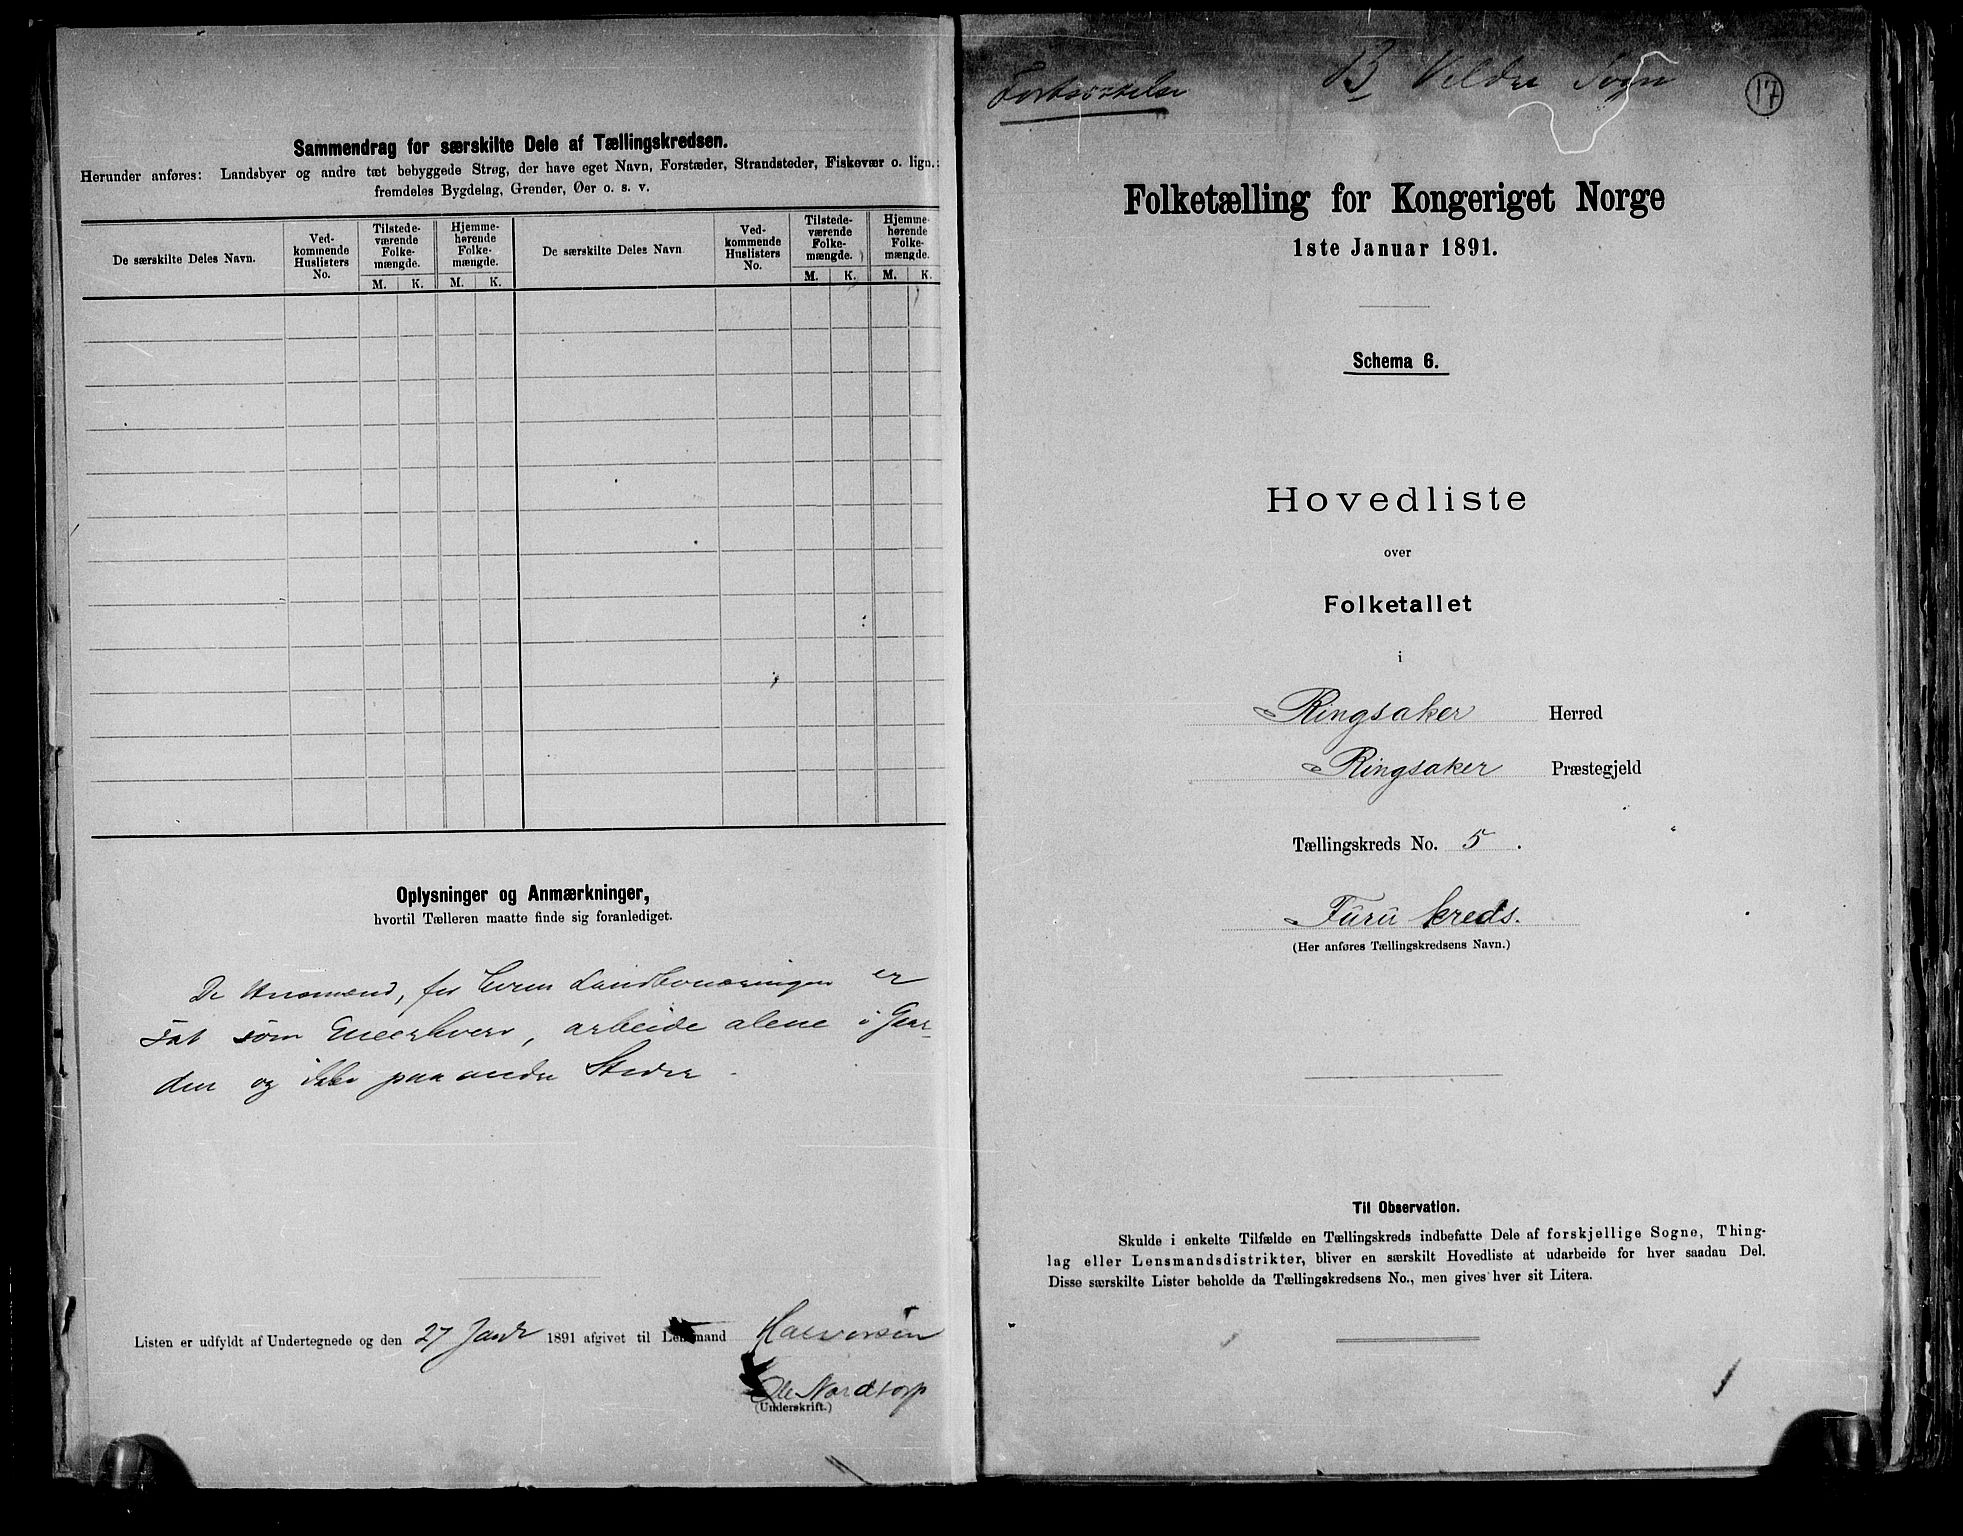 Sammendrag for særskilte Dele af Tællingskredsen.
Herunder anføres: Landsbyer og andre tæt bebyggede Strøg, der have eget Navn, Forstæder, Strandsteder, Fiskevær o. lign.;
fremdeles Bygdelag, Grender, Øer o. s. v.
De særskilte Deles Navn.
Ved-
kommende
Huslisters
No.
Tilstede-
værende
Folke-
mængde.
Hjemme-
hørende
Folke-
mængde.
M. K. M. K.
De særskilte Deles Navn
Ved-
kommende
Huslisters
No.
Tilstede-
værende
Folke-
mængde.
Hjemme-
hørende
Folke-
mængde.
M. K. M. K.
Oplysninger og Anmærkninger,
hvortil Tælleren maatte finde sig foranlediget.
De Husmænd, for hvem Landbonæringen er
sat som Eneerhverv, arbeide alene i Gaar-
den og ikke paa andre Steder.
Listen er udfyldt af Undertegnede og den 27 Jandr 1891 afgivet til Lensmand Halvorsen
Ole Nordtorp
(Underskrift.)
B Veldre Sogn
17
Folketælling for Kongeriget Norge
1ste Januar 1891.
Schema 6.
Hovedliste
over
Folketallet
i
Ringsaker Herred
Ringsaker Præstegjeld
Tællingskreds No. 5.
Furu kreds.
(Her anføres Tællingskredsens Navn.)
Til Observation.
Skulde i enkelte Tilfælde en Tællingskreds indbefatte Dele af forskjellige Sogne, Thing-
lag eller Lensmandsdistrikter, bliver en særskilt Hovedliste at udarbeide for hver saadan Del.
Disse særskilte Lister beholde da Tællingskredsens No., men gives hver sit Litera.